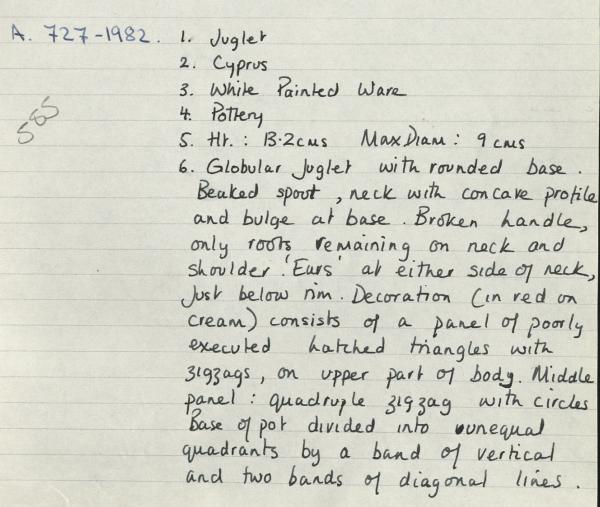 A. 727-1982. 1. Juglet
2. Cyprus
3. White Painted Ware
4. Pottery
585
5. Ht. : 13.2cms Max Diam : 9 cms
6. Globular Juglet with rounded base.
Beaked spout, neck with concave profile
and bulge at base. Broken handle,
only roots remaining on neck and
shoulder. 'Ears' at either side of neck,
Just below rim. Decoration (in red on
cream) consists of a panel of poorly
executed hatched triangles with
zigzags, on upper part of body. Middle
panel : quadruple zigzag with circles
Base of pot divided into unequal
quadrants by a band of vertical
and two bands of diagonal lines.